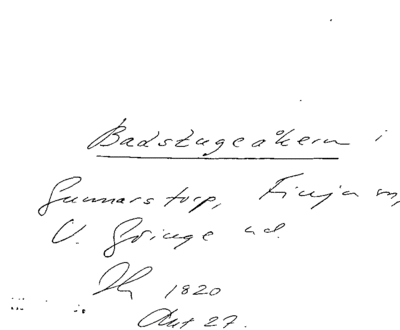 Badstugeåkern i
Gunnarstorp, Finja sn,
V. Göinge hd.
1820
Akt 27.